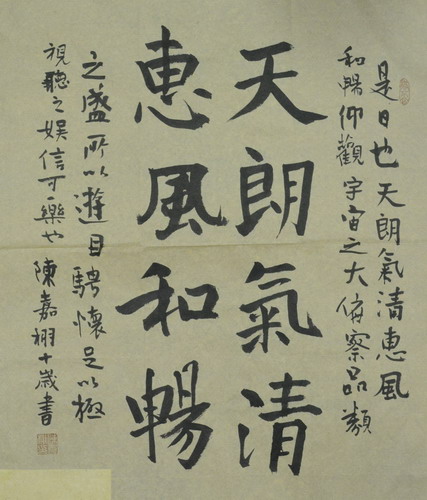 是日也天朗氣清惠風
和暢仰觀宇宙之大俯察品類
天朗氣清
惠風和暢
之盛所以遊目騁懷足以極
視聽之娛信可樂也陳嘉栩十歲書